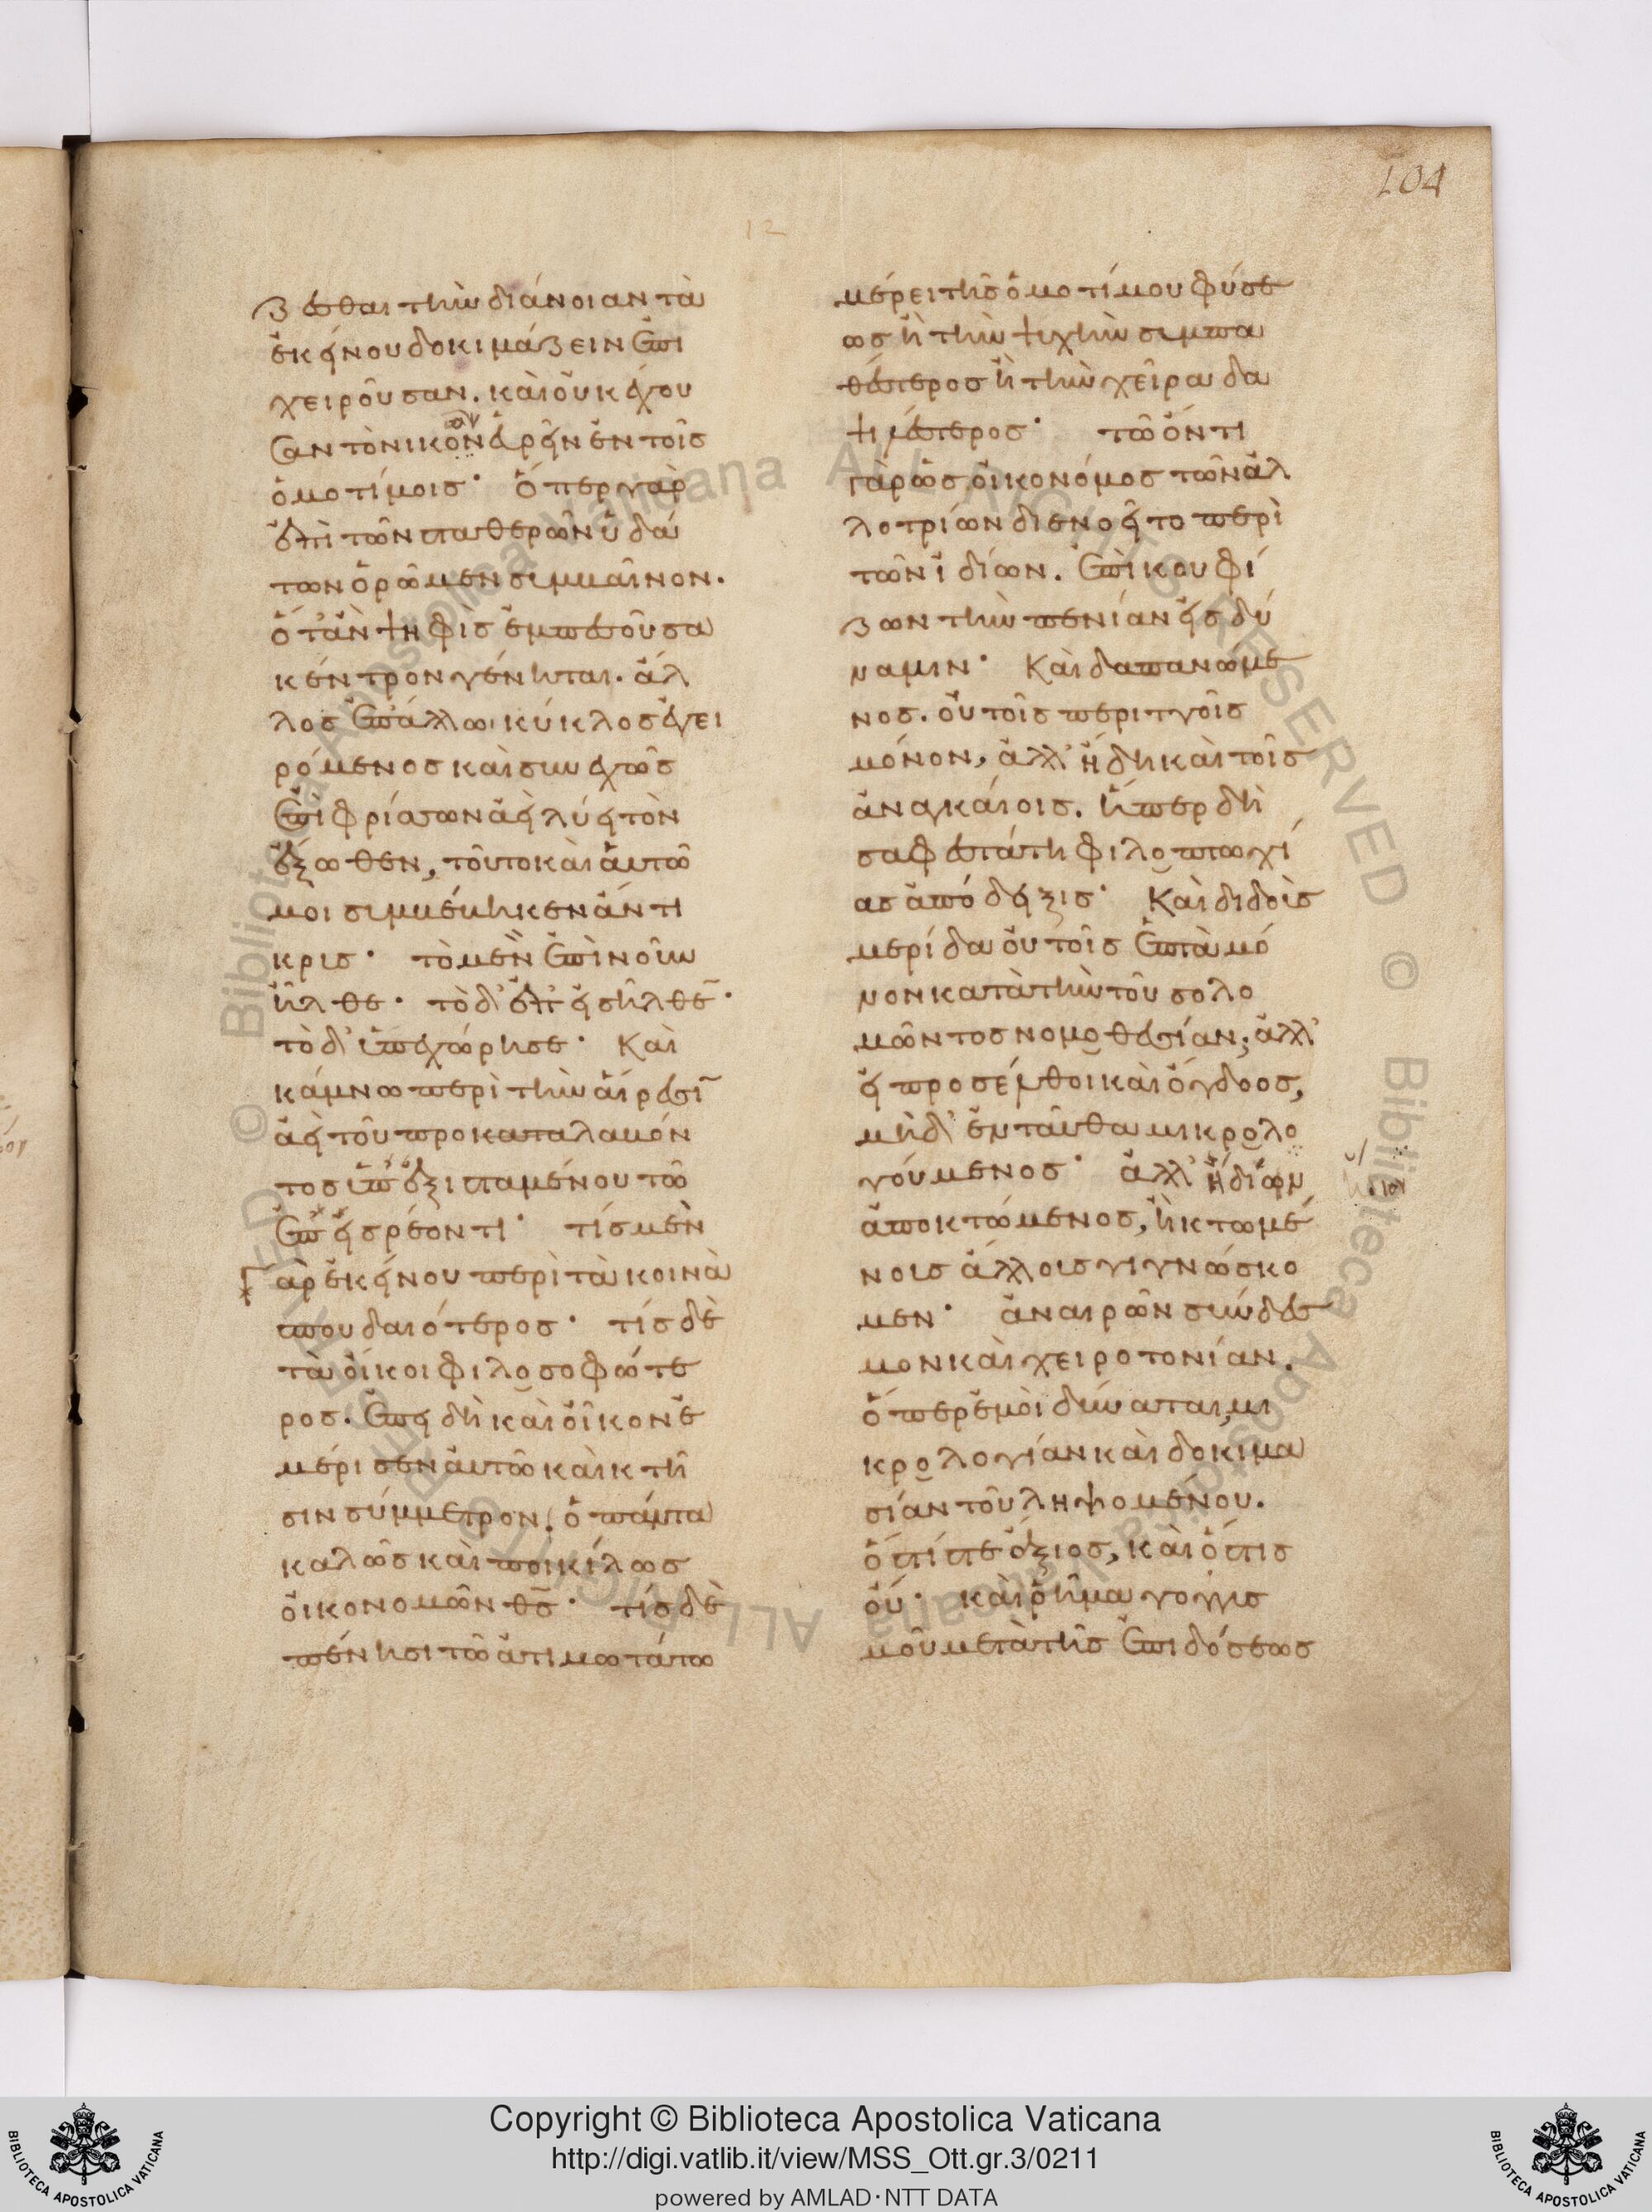 104
12
ζεσθαι τὴν διάνοιαν τὰ
ἐκείνου δοκιμάζειν ἐπι
χειροῦσαν. καὶ οὐκ ἔχου
σαν τὸ νικᾶν εὑρεῖν ἐν τοῖς
ὁμοτίμοις· ὅπερ γὰρ
ἐπὶ τῶν σταθερῶν ὑδά
των ὁρῶμεν συμβαῖνον.
ὅτἂν ψηφὶς ἐμπεσοῦσα
κέντρον γένηται. ἄλ
λος ἐπ' ἄλλω κύκλος ἐγει
ρόμενος καὶ συνεχῶς
ἐπιφριάσσων ἀεὶ λύει τὸν
ἔξωθεν, τοῦτο καὶ αὐτῶ
μοι συμβέβηκεν ἄντι
κρυς· τὸ μὲν ἐπὶ νοῦν
ἦλθε· τὸ δ' ἐπεισῆλθε̄·
τὸ δ' ὑπεχώρησε· Καὶ
κάμνω περὶ τὴν αἵρεσῑ
ἀεὶ τοῦ προκαταλαβόν
τος ὑπεξισταμένου τῶ
ἐπεισρέοντι· τίς μὲν
γὰρ ἐκείνου περὶ τὰ κοινὰ
σπουδαιότερος· τίς δὲ
τὰ οἴκοι φιλοσοφώτε
ρος. ἐπεὶ δὴ καὶ οἶκον ἐ
μέρισεν αὐτῶ καὶ κτῆ
σιν σύμμετρον, ὁ πάντα
καλῶς καὶ ποικίλως
οἰκονομῶν θς̄· τίς δὲ
πένησι τῶ ἀτιμωτάτω
μέρει τῆς ὁμοτίμου φύσε
ως ἢ τὴν ψυχὴν συμπα
θέστερος ἢ τὴν χεῖρα δα
ψιλέστερος· τῶ ὄντι
γὰρ ὡς οἰκονόμος τῶν ἀλ
λοτρίων διενοεῖτο περὶ
τῶν ἰδίων. ἐπικουφί
ζων τὴν πενίαν εἰς δύ
ναμιν· Καὶ δαπανώμε
νος. οὐ τοῖς περιττοῖς
μόνον, ἀλλ' ἤδη καὶ τοῖς
ἀναγκαίοις. ἥπερ δὴ
σαφεστάτη φιλοπτωχί
ας ἀπόδειξις· Καὶ διδοὺς
μερίδα οὐ τοῖς ἑπτὰ μό
νον κατὰ τὴν τοῦ σολο
μῶντος νομοθεσίαν, ἀλλ'
εἰ προσέλθοι καὶ ὄγδοος,
μὴ δ' ἐνταῦθα μικρολο
γούμενος· ἀλλ' ἥδιον
ἀποκτώμενος, ἢ κτωμέ
νοις ἄλλοις γιγνώσκο
μεν· ἀναιρῶν σύνδεσ
μον καὶ χειροτονίαν.
ὅπερ ἐμοὶ δύναται, μι
κρολογίαν καὶ δοκιμα
σίαν τοῦ ληψομένου.
ὅστίς τε ἄξιος, καὶ ὅστις
οὔ· καὶ ῥῆμα γογγυσ
μοῦ μετὰ τῆς ἐπιδόσεως
© Biblioteca Apostolica Vaticana ALL RIGHTS RESERVED © Biblioteca Apostolica Vaticana ALL RIGHTS RESERVED
Copyright © Biblioteca Apostolica Vaticana
http://digi.vatlib.it/view/MSS_Ott.gr.3/0211
powered by AMLAD·NTT DATA
BIBLIOTECA APOSTOLICA VATICANA
BIBLIOTECA APOSTOLICA VATICANA